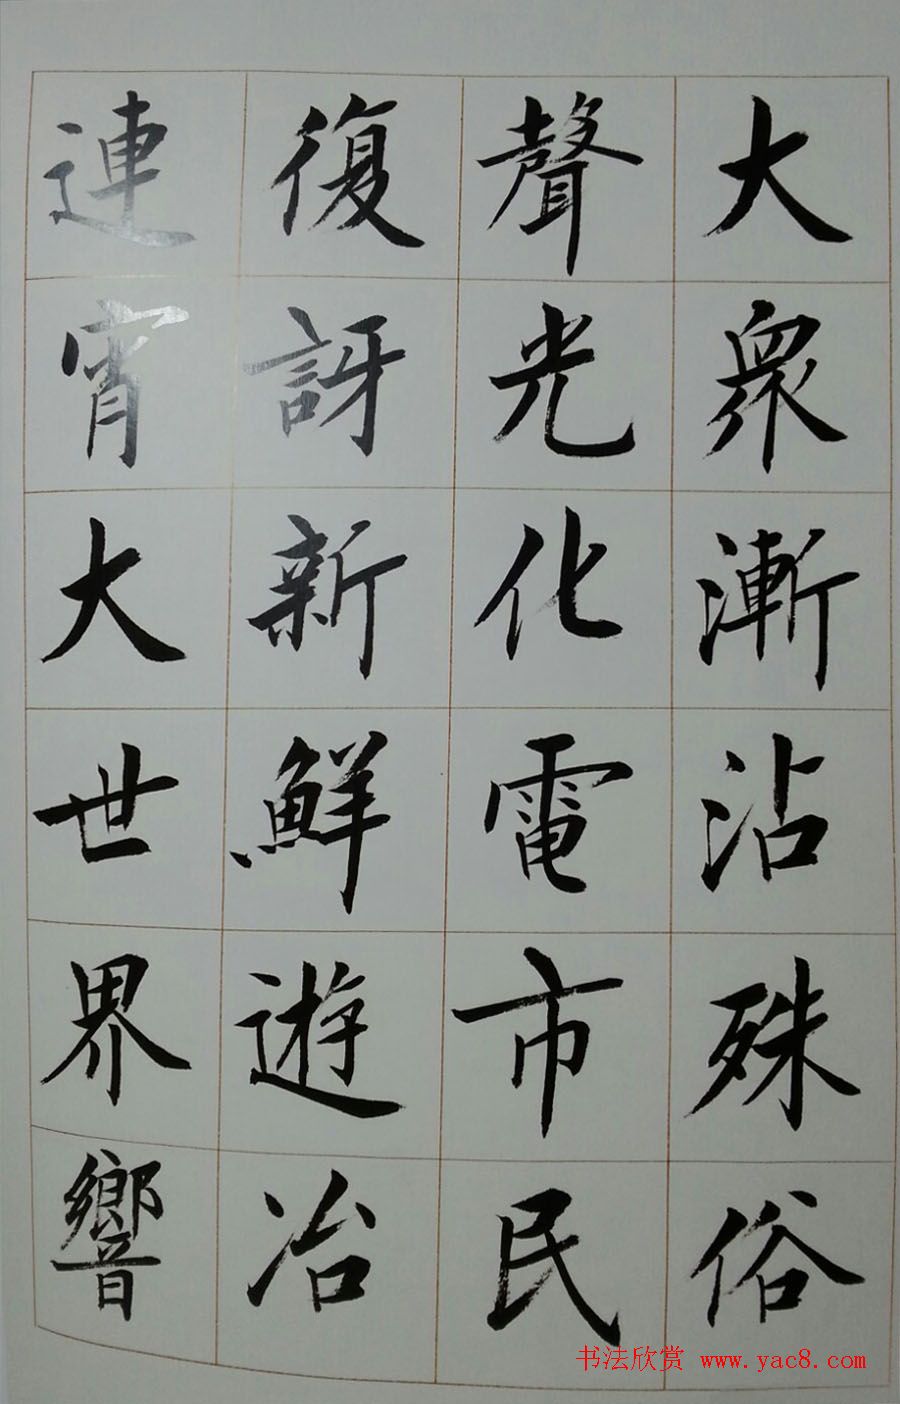 大衆漸沾殊俗
聲光化電市民
復訝新鮮遊冶
連宵大世界響
书法欣赏 www.yac8.com